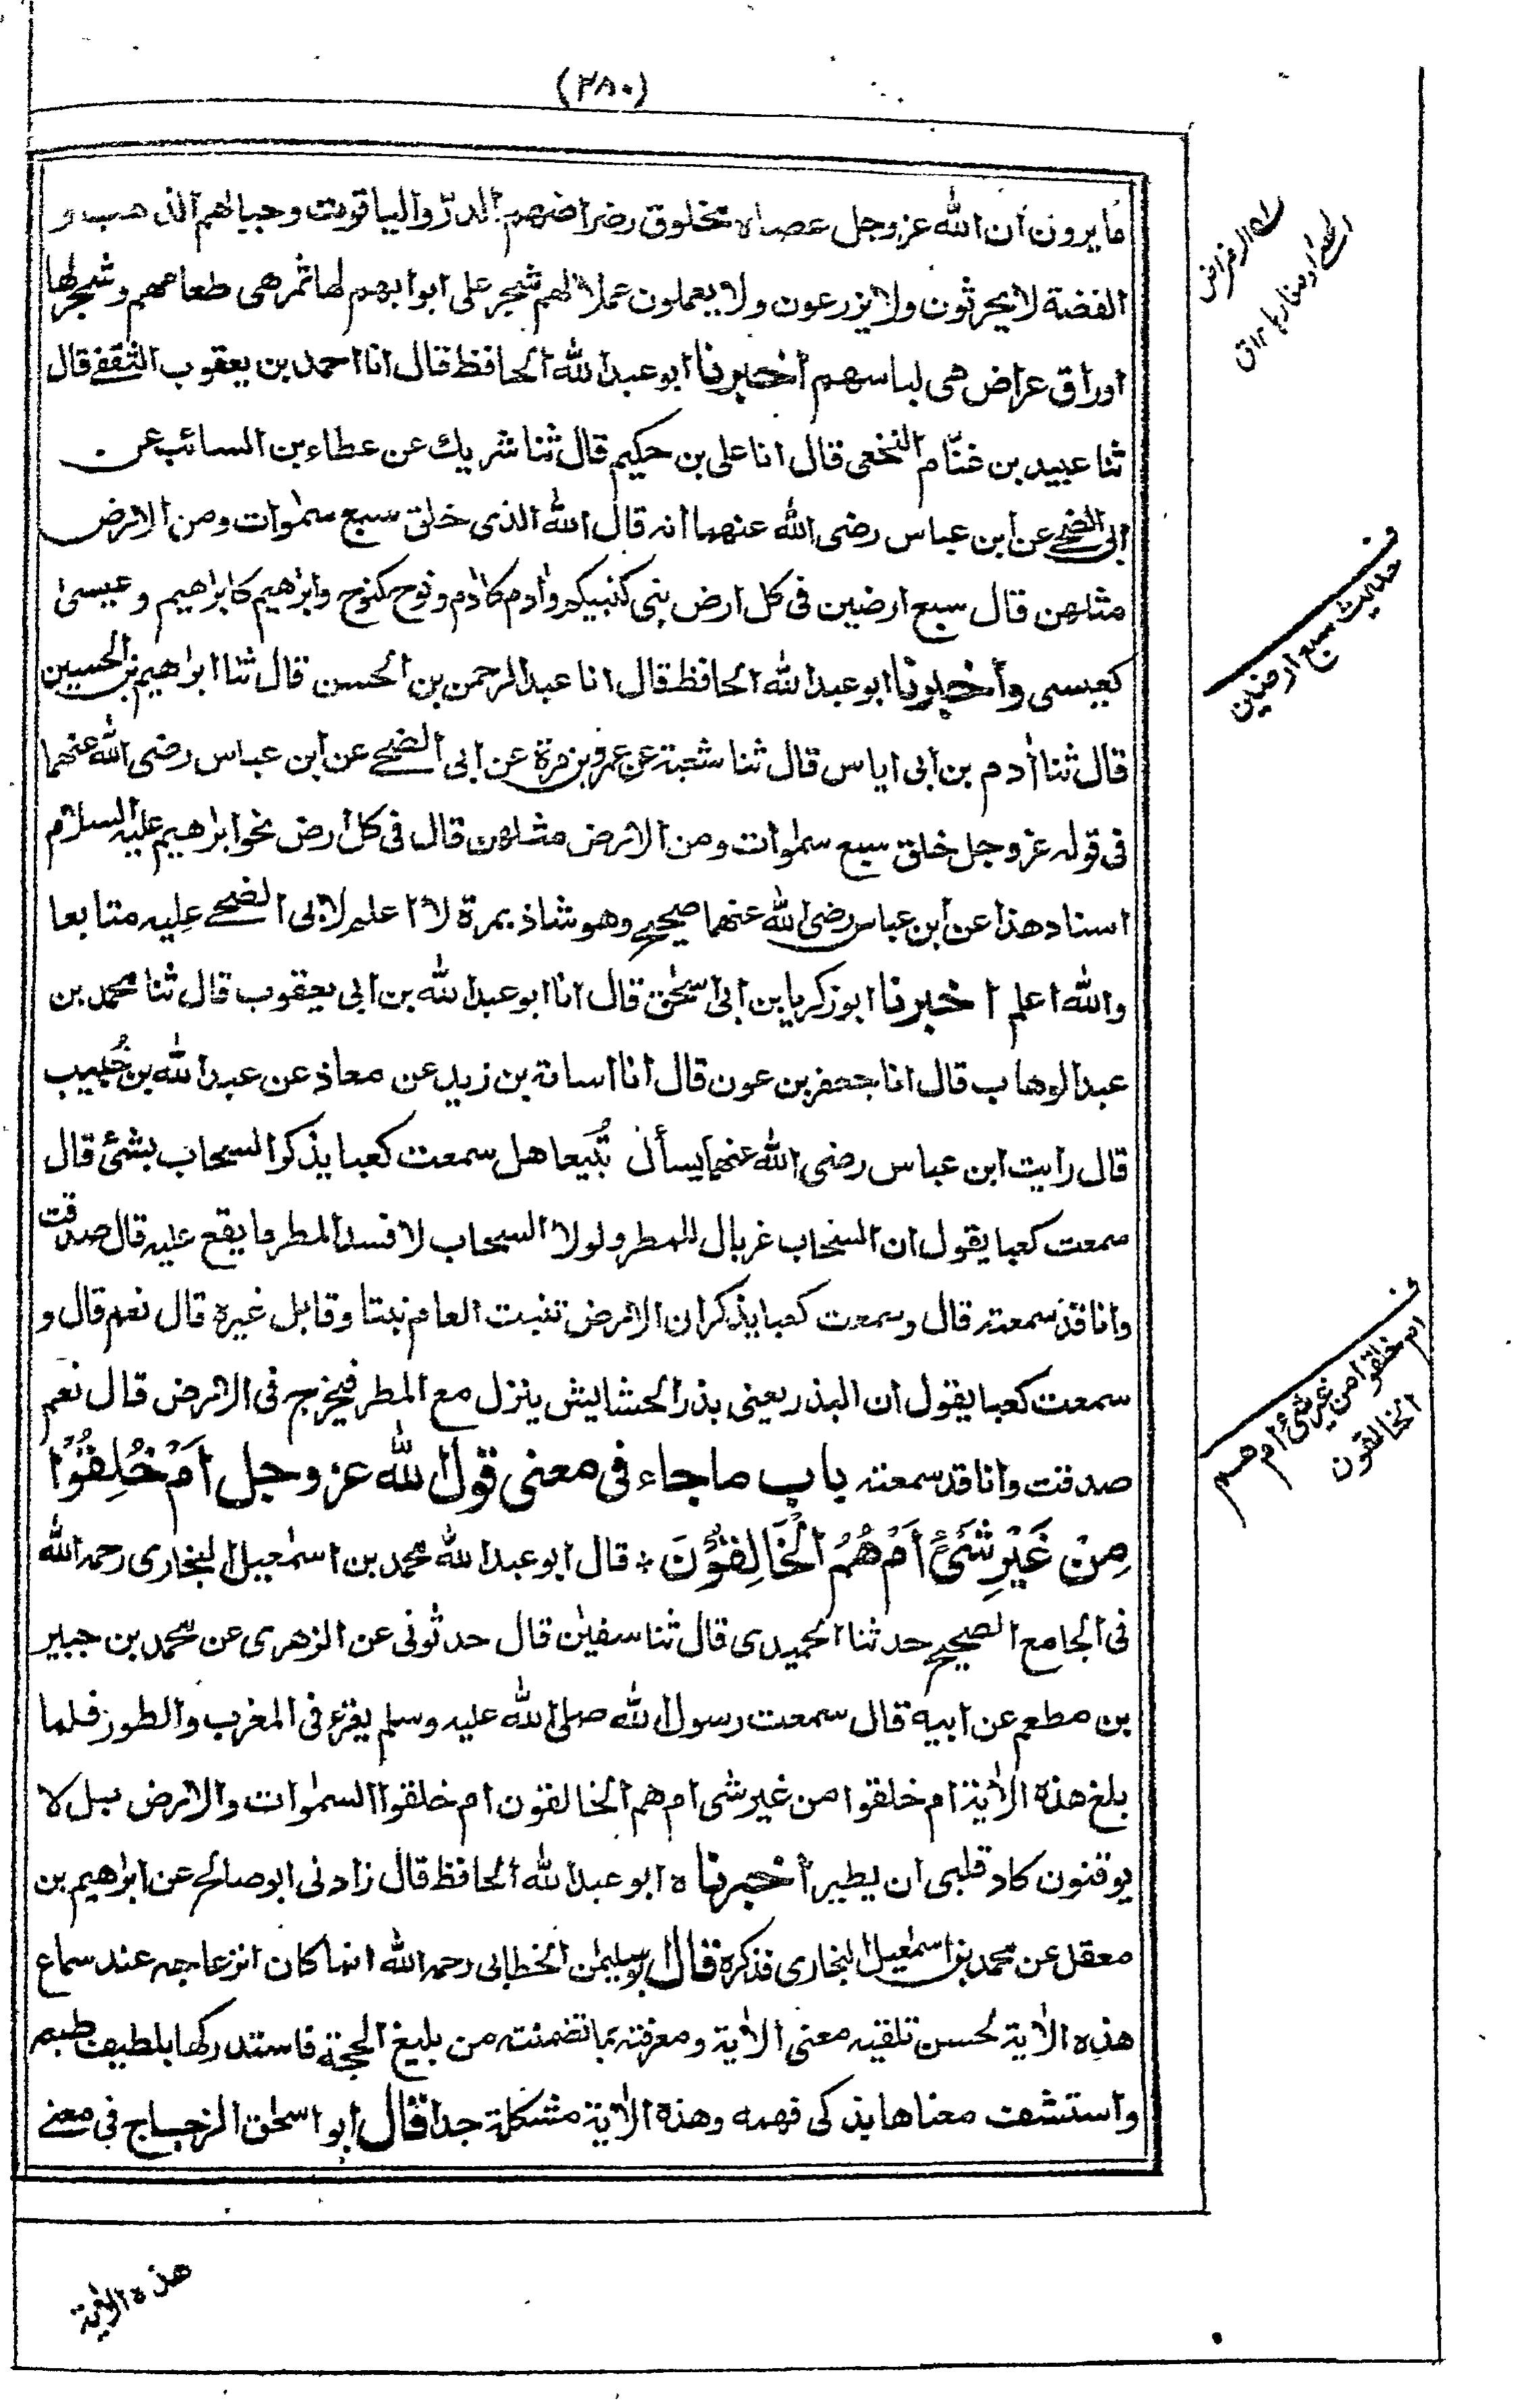 (٢٨٠)
ما يرون ان الله عز وجل عصاه مخلوق رضراضهم الدرّ والياقوت وجبالهم الذهب و
الفضة لا يحرثون ولا يزرعون ولا يعملون عملا لهم شجر على ابوابهم لها ثمر هى طعامهم وشجر لها
اوراق عراض هى لباسهم اخبرنا ابو عبد الله الحافظ قال انا احمد بن يعقوب الثقفے قال
ثنا عبيد بن غنّام النخعى قال انا على بن حكيم قال ثنا شريك عن عطاء بن السائب عن
ابى الضحے عن ابن عباس رضى الله عنهما انه قال الله الذى خلق سبع سمٰوات ومن الارض
مثلهن قال سبع ارضين فى كل ارض نبى كنبيكم واٰدم كاٰدم ونوح كنوح وابرٰهيم كابرٰهيم وعيسىٰ
كعيسى واخبرنا ابو عبد الله الحافظ قال انا عبد الرحمن بن الحسن قال ثنا ابراهيم بن الحسين
قال ثنا اٰدم بن ابى اياس قال ثنا شعبة عن عمرو بن مرة عن ابى الضحے عن ابن عباس رضى الله عنهما
فى قوله عز وجل خلق سبع سمٰوات ومن الارض مثلهن قال فى كل ارض نحو ابرٰهيم عليه السلام
اسناد هذا عن ابن عباس رضى الله عنهما صحيح وهو شاذ بمرة لا اعلم لابى الضحے عليه متابعا
والله اعلم اخبرنا ابو زكريا بن ابى اسحٰق قال انا ابو عبد الله بن ابى يعقوب قال ثنا محمد بن
عبد الوهاب قال انا جعفر بن عون قال انا اسامة بن زيد عن معاذ عن عبد الله بن خُبيب
قال رايت ابن عباس رضى الله عنهما يسأل تُبَيعا هل سمعت كعبا يذكر السحاب بشئ قال
سمعت كعبا يقول ان السحاب غربال للمطر ولولا السحاب لافسد المطر ما يقع عليه قال صدقت
وانا قد سمعته قال وسمعت كعبا يذكر ان الارض تنبت العام نبتا وقابل غيره قال نعم قال و
سمعت كعبا يقول ان البذر يعنى بذر الحشايش ينزل مع المطر فيخرج فى الارض قال نعم
صدقت وانا قد سمعته باب ما جاء فى معنى قول الله عز وجل اَمْ خُلِقُوْا
مِنْ غَيْرِ شَىْءٍ اَمْ هُمُ الْخَالِقُوْنَ * قال ابو عبد الله محمد بن اسمٰعيل البخارى رحمه الله
فى الجامع الصحيح حدثنا الحميدى قال ثنا سفيٰن قال حدثونى عن الزهرى عن محمد بن جبير
بن مطعم عن ابيه قال سمعت رسول الله صلى الله عليه وسلم يقرء فى المغرب والطور فلما
بلغ هذه الاٰية ام خلقوا من غير شى ام هم الخالقون ام خلقوا السمٰوات والارض بل لا
يوقنون كاد قلبى ان يطير اخبرناه ابو عبد الله الحافظ قال زادنى ابو صالح عن ابرٰهيم بن
معقل عن محمد بن اسمٰعيل البخارى فذكره قال ابو سليمٰن الخطابى رحمه الله انما كان انزعاجه عند سماع
هذه الاٰية لحسن تلقيه معنى الاٰية ومعرفته بما تضمنته من بليغ الحجة فاستدركها بلطيف طبعه
واستشف معناها بذكى فهمه وهذه الاٰية مشكلة جدا قال ابو اسحٰق الزجاج فى معنے
هذه الاٰية
ف
حديث سبع ارضين
ف
ام خلقوا من غير شئ ام هم
الخالقون